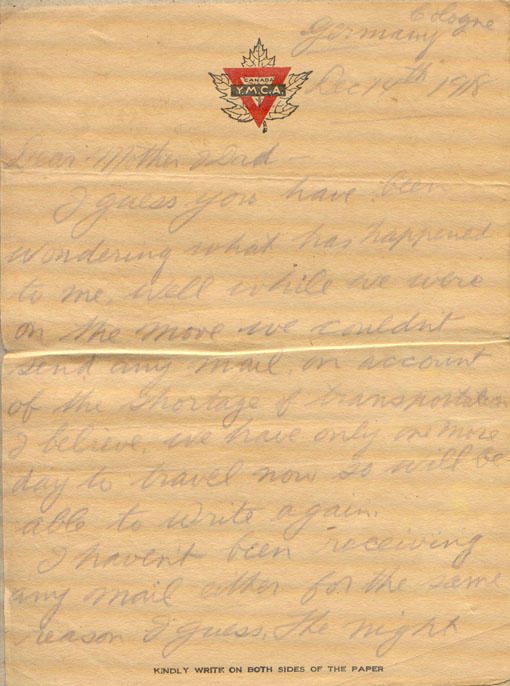 Cologne
Germany
Dec 14th 1918
CANADA
Y.M.C.A.
Dear Mother & Dad –
I guess you have been
wondering what has happened
to me, well while we were
on the move we couldn't
send any mail, on account
of the shortage of transportation
I believe, we have only one more
day to travel now so will be
able to write again.
I haven't been receiving
any mail either for the same
reason I guess. The night
KINDLY WRITE ON BOTH SIDES OF THE PAPER